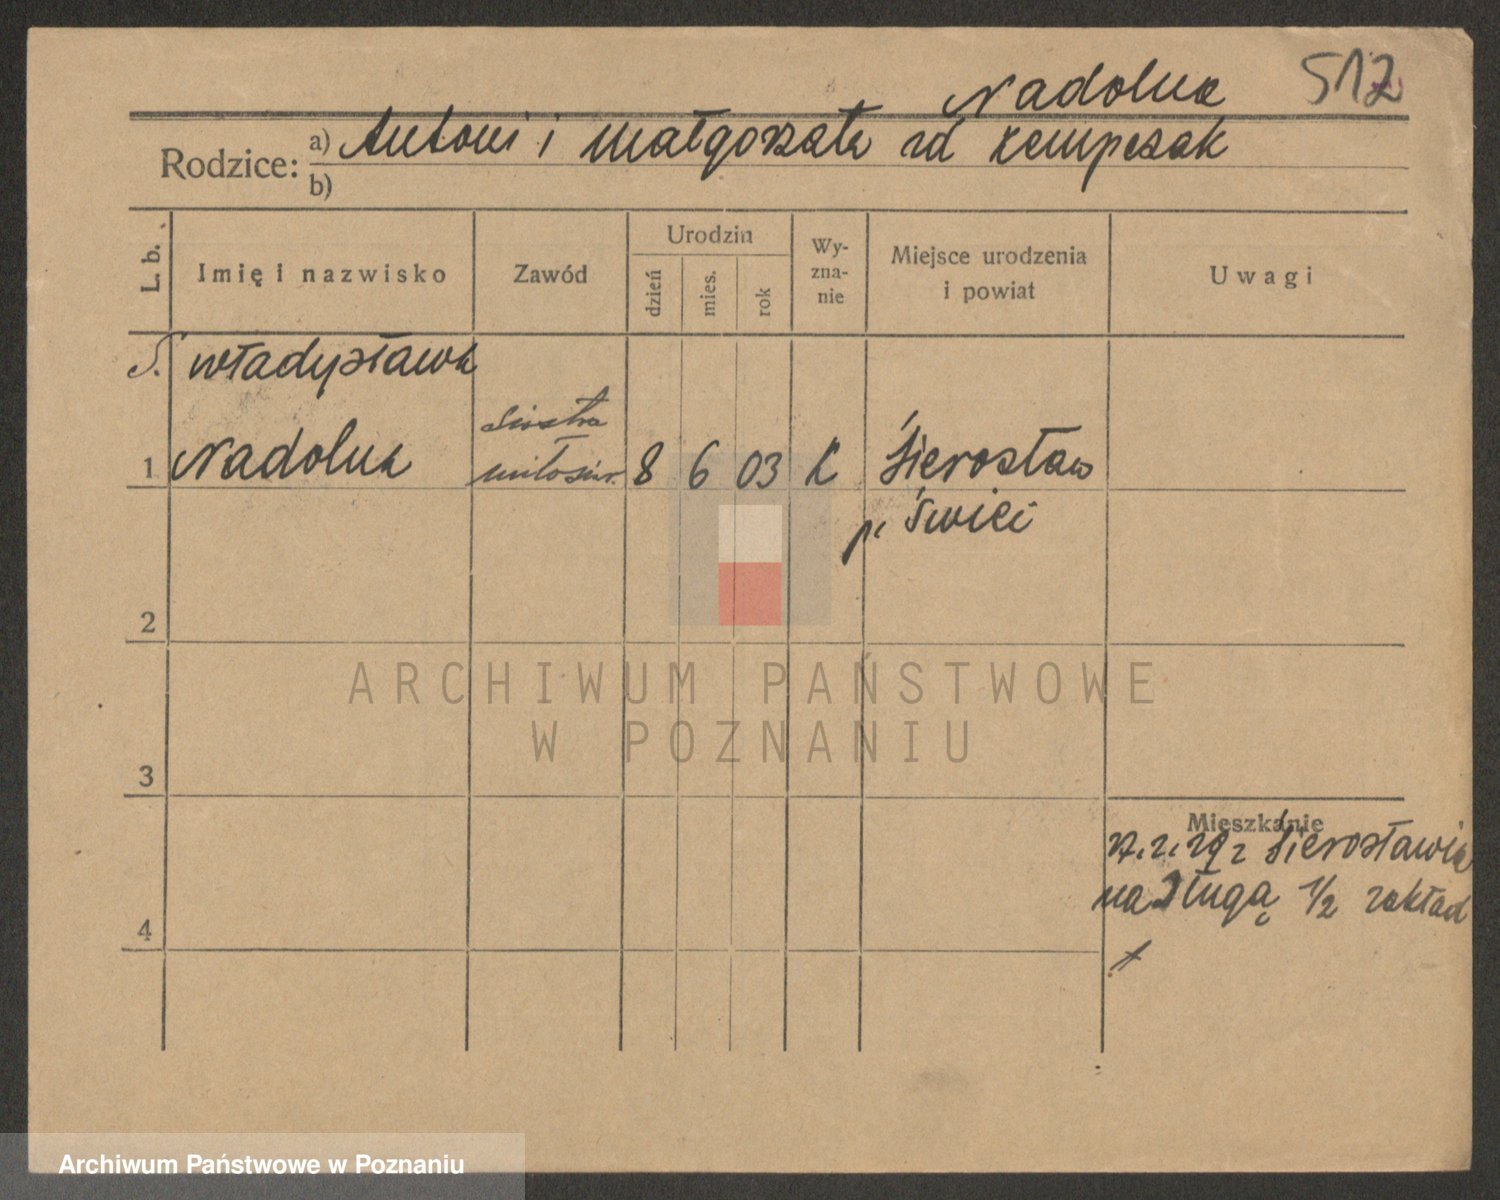 Nadolna 512
Rodzice: a) Antoni i Małgorzata zd Kempczak
b)
L. b. Imię i nazwisko Zawód Urodzin dzień mies. rok Wy-zna-nie Miejsce urodzenia i powiat Uwagi
S. Władysława
1 Nadolna siostra miłosier. 8 6 03 K Sierosław
p. Świeci
2
3
4
Mieszkanie
z Sierosławia
na Długą 1/2 zakład
ARCHIWUM PAŃSTWOWE
W POZNANIU
Archiwum Państwowe w Poznaniu